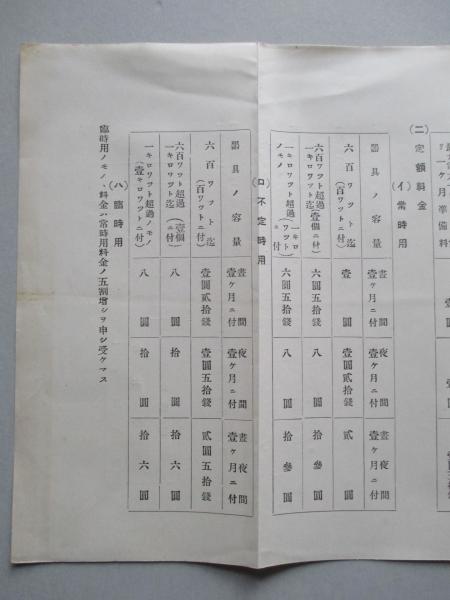 リ一ケ月準備料
(二)定額料金
(イ)常時用
器具ノ容量
晝間壹ケ月ニ付
夜間壹ケ月ニ付
晝夜間壹ケ月ニ付
六百ワツト迄(百ワツトニ付)
壹圓
壹圓貳拾錢
貳圓
六百ワツト超過一キロワツト迄(壹個ニ付)
六圓五拾錢
八圓
拾參圓
一キロワツト超過ノモノ(一キロワツトニ付)
六圓五拾錢
八圓
拾參圓
(ロ)不定時用
器具ノ容量
晝間壹ケ月ニ付
夜間壹ケ月ニ付
晝夜間壹ケ月ニ付
六百ワツト迄(百ワツトニ付)
壹圓貳拾錢
壹圓五拾錢
貳圓五拾錢
六百ワツト超過一キロワツト迄(壹個ニ付)
八圓
拾圓
拾六圓
一キロワツト超過ノモノ(壹キロワツトニ付)
八圓
拾圓
拾六圓
(ハ)臨時用
臨時用ノモノヽ料金ハ常時用料金ノ五割增シヲ申シ受ケマス